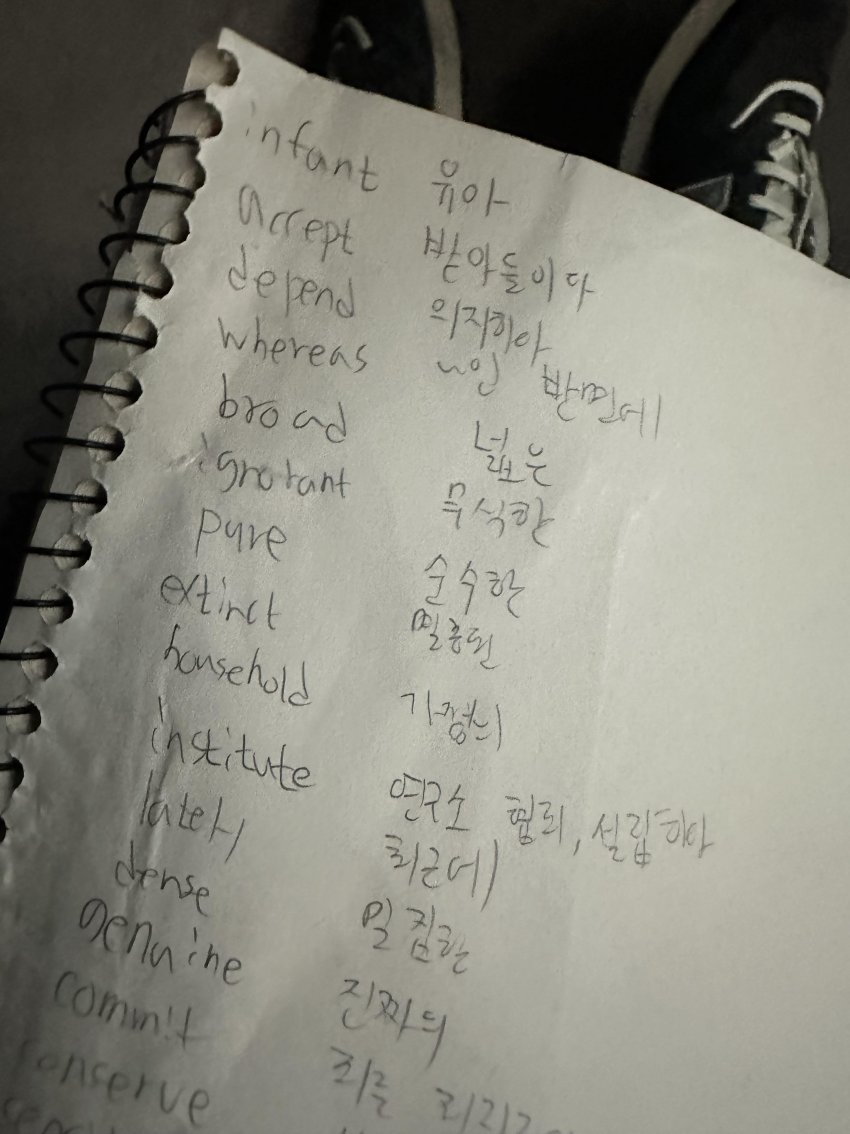 infant 유아
accept 받아들이다
depend 의지하다
whereas ~인 반면에
broad 넓은
ignorant 무식한
pure 순수한
extinct 멸종된
household 가정의
institute 연구소 협회, 설립하다
lately 최근에
dense 밀집한
genuine 진짜의
commit 죄를
conserve